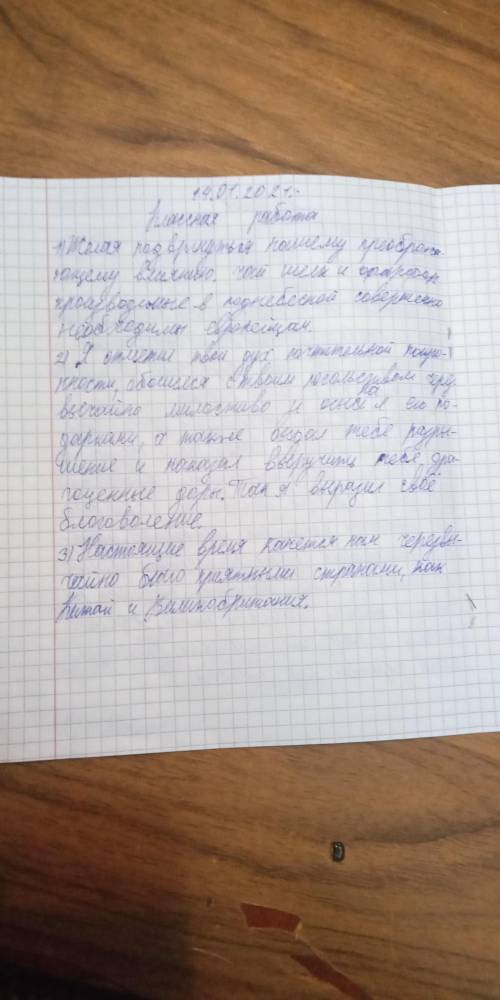 14.01.2021г
Классная работа
1) Желая подвергнуться нашему преобража-
ющему влиянию. чай шелк и фарфор
производимые в поднебесной совершенно
необходимы европейцам.
2) Я отметил твой дух почтительной покор-
ности, обошелся с твоим посольством чрез
вычайно милостиво и осыпал его по-
дарками, а также выдал тебе разре-
шение и наказал вверучить тебе дра-
гоценные дары. Так я выразил своё
благоволение.
3) Настоящие время кажется нам черезвы-
чайно было приятными странами, как
Китай и Великобритания.